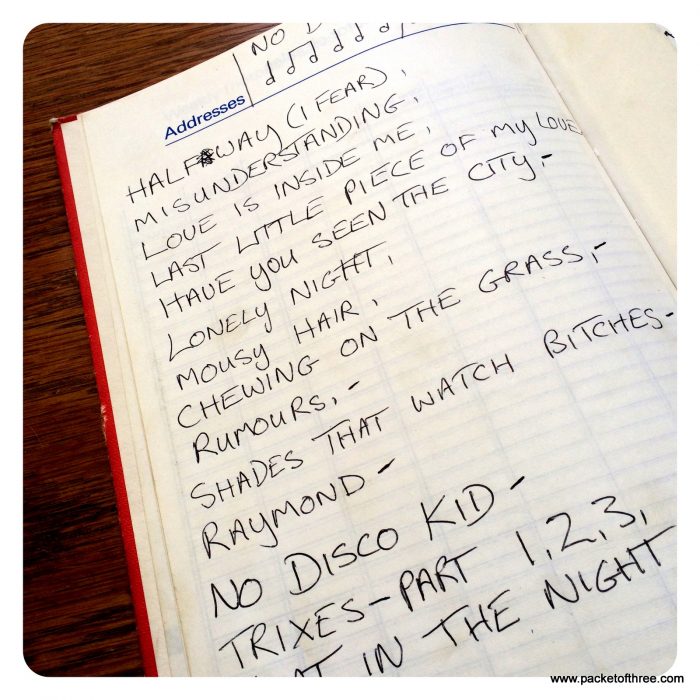 NO D
Addresses
HALFWAY (I FEAR),
MISUNDERSTANDING,
LOVE IS INSIDE ME,
LAST LITTLE PIECE OF MY LOVE
HAVE YOU SEEN THE CITY,-
LONELY NIGHT,
MOUSY HAIR,
CHEWING ON THE GRASS,-
RUMOURS,-
SHADES THAT WATCH BITCHES-
RAYMOND-
NO DISCO KID-
TRIXES-PART 1,2,3,
IN THE NIGHT
www.packetofthree.com